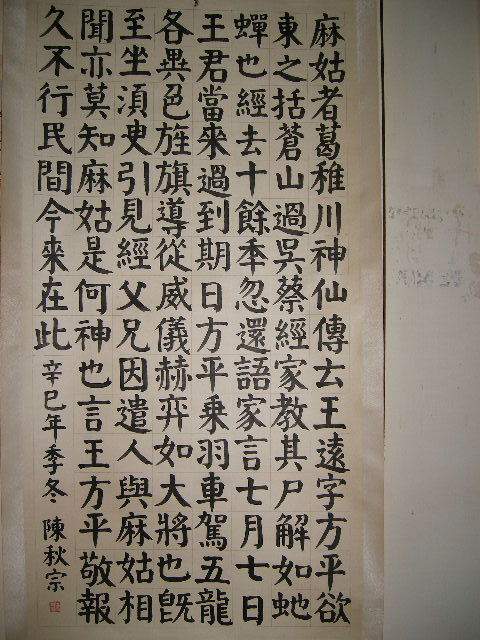 麻姑者葛稚川神仙傳云王遠字方平欲
東之括蒼山過吳蔡經家教其尸解如虵
蟬也經去十餘年忽還語家言七月七日
王君當來過到期日方平乗羽車駕五龍
各異色旌旗導從威儀赫弈如大將也旣
至坐湏臾引見經父兄因遣人與麻姑相
聞亦莫知麻姑是何神也言王方平敬報
久不行民間今來在此 辛巳年季冬 陳秋宗